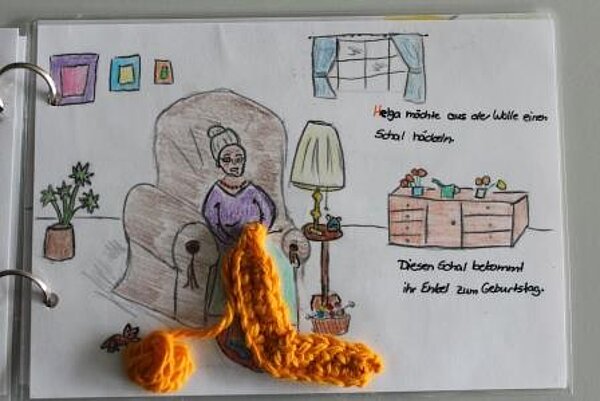 Helga möchte aus der Wolle einen
Schal häckeln.
Diesen Schal bekommt
ihr Enkel zum Geburtstag.